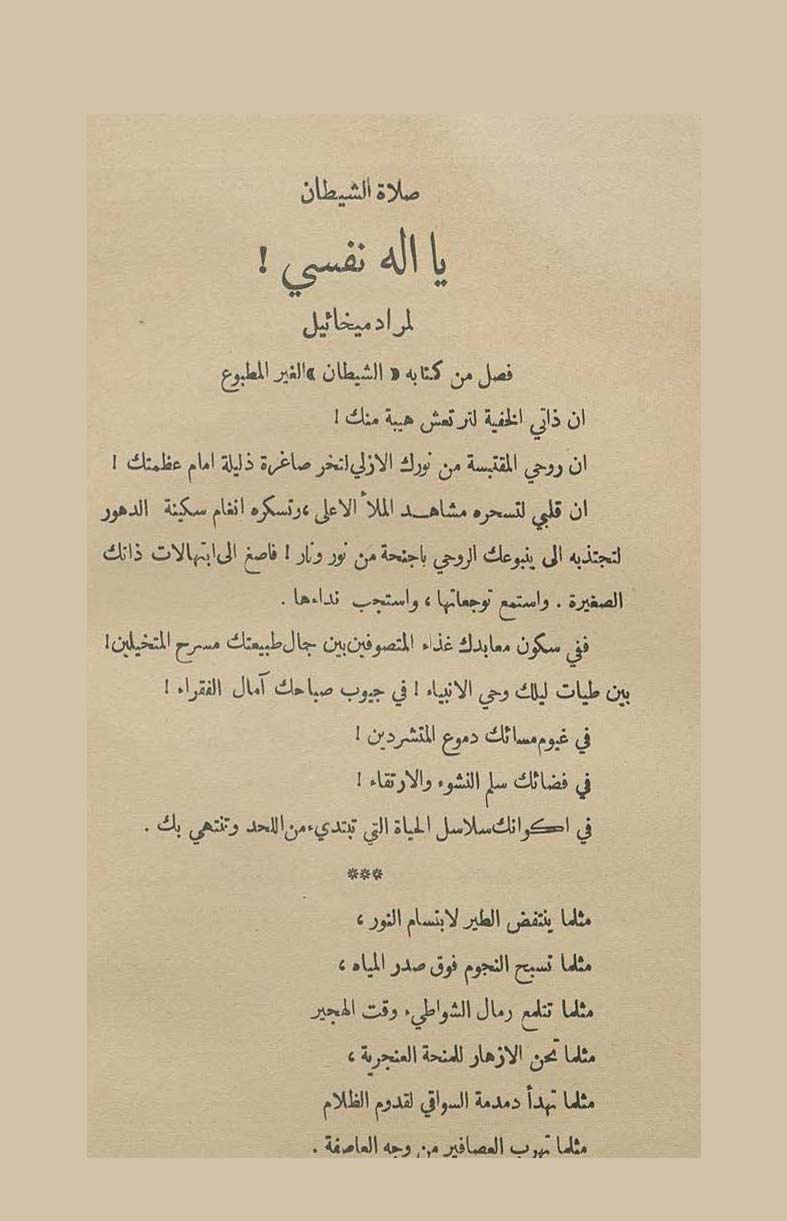 صلاة الشيطان
يا اله نفسي !
لمراد ميخائيل
فصل من كتابه « الشيطان » الغير المطبوع
ان ذاتي الخفية لترتعش هيبة منك !
ان روحي المقتبسة من نورك الازلي لتخر صاغرة ذليلة امام عظمتك !
ان قلبي لتسحره مشاهـد الملأ الاعلى ، وتسكره انغام سكينة الدهور
لتجتذبه الى ينبوعك الروحي باجنحة من نور ونار ! فاصغ الى ابتهالات ذاتك
الصغيرة . واستمع توجعاتها ، واستجب نداءها .
ففي سكون معابدك غذاء المتصوفين بين جمال طبيعتك مسرح المتخيلين !
بين طيات ليلك وحي الانبياء ! في جيوب صباحك آمال الفقراء !
في غيوم مسائك دموع المتشردين !
في فضائك سلم النشوء والارتقاء !
في اكوانك سلاسل الحياة التي تبتديء من اللحد وتنتهي بك .
***
مثلما ينتفض الطير لابتسام النور ،
مثلما تسبح النجوم فوق صدر المياه ،
مثلما تتلمع رمال الشواطيء وقت الهجير
مثلما تحن الازهار للمنحة العنجرية ،
مثلما تهدأ دمدمة السواقي لقدوم الظلام
مثلما تهرب العصافير من وجه العاصفة .